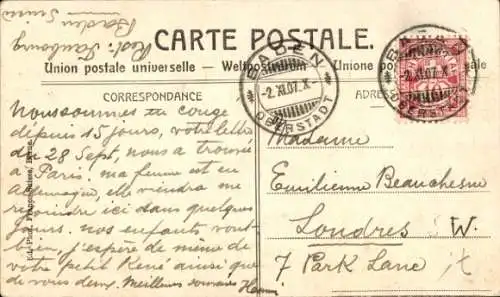 Rest. Faubourg
Baden Suisse
CARTE POSTALE.
Union postale universelle — Weltpostverein — Unione postale
CORRESPONDANCE
BADEN
-2.XI.07.X-
OBERSTADT
BADEN
-2.XI.07.X-
OBERSTADT
Nous sommes en congé
depuis 15 jours, votre lettre
de 28 Sept, nous a trouvée
à Paris; ma femme est en
Allemagne, elle viendra me
rejoindre ici dans quelques
jours. nos enfants vont
bien j'espère de même de
votre petit René ainsi que
de vous deux. Meilleurs souvenirs Henri
Madame
Emilienne Beauchesne
Londres W.
7 Park Lane